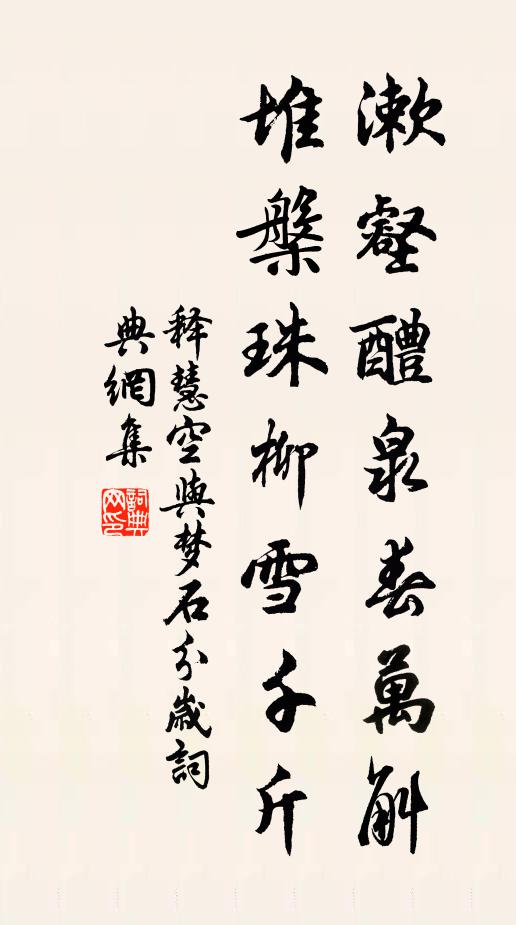 漱壑醴泉春萬斛
堆槃珠柳雪千斤
释慧空與梦石分歲詞
典網集
詞典
网印